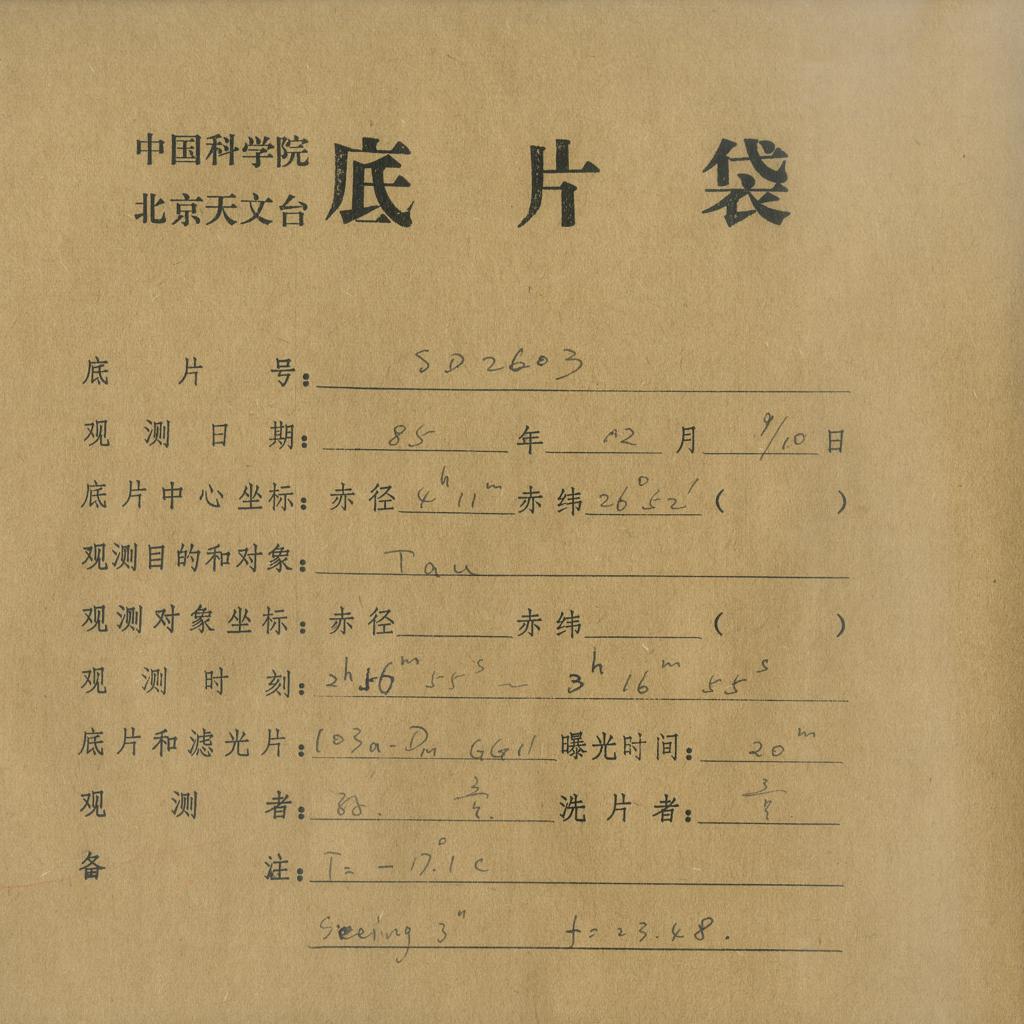 中国科学院
北京天文台 底片袋
底片号: SD2603
观测日期: 85年12月9/10日
底片中心坐标: 赤径 4h 11m 赤纬 26°52′ ( )
观测目的和对象: Tau
观测对象坐标: 赤径 赤纬 ( )
观测时刻: 2h 56m 55s ~ 3h 16m 55s
底片和滤光片: 103a-D GG11 曝光时间: 20m
观测者: 洗片者:
备注: T= -17°.1 C
Seeing 3″ f=23.48.